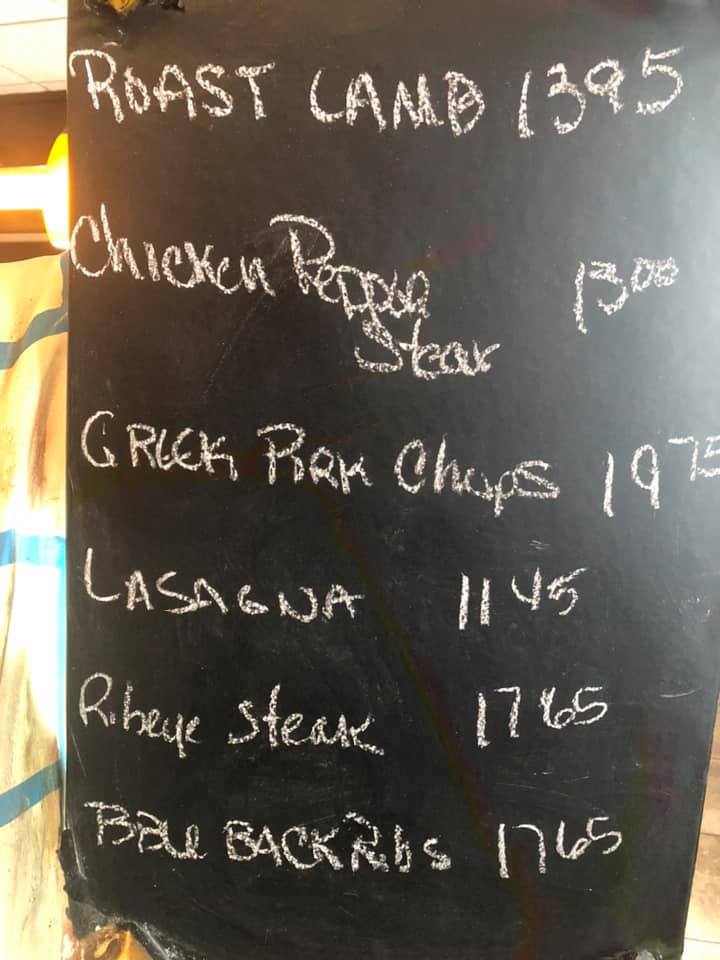 ROAST LAMB 1395
Chicken Pepper 1300
Steak
GREEK PORK Chops 1975
LASAGNA 1145
Ribeye Steak 1765
BACK Ribs 1765